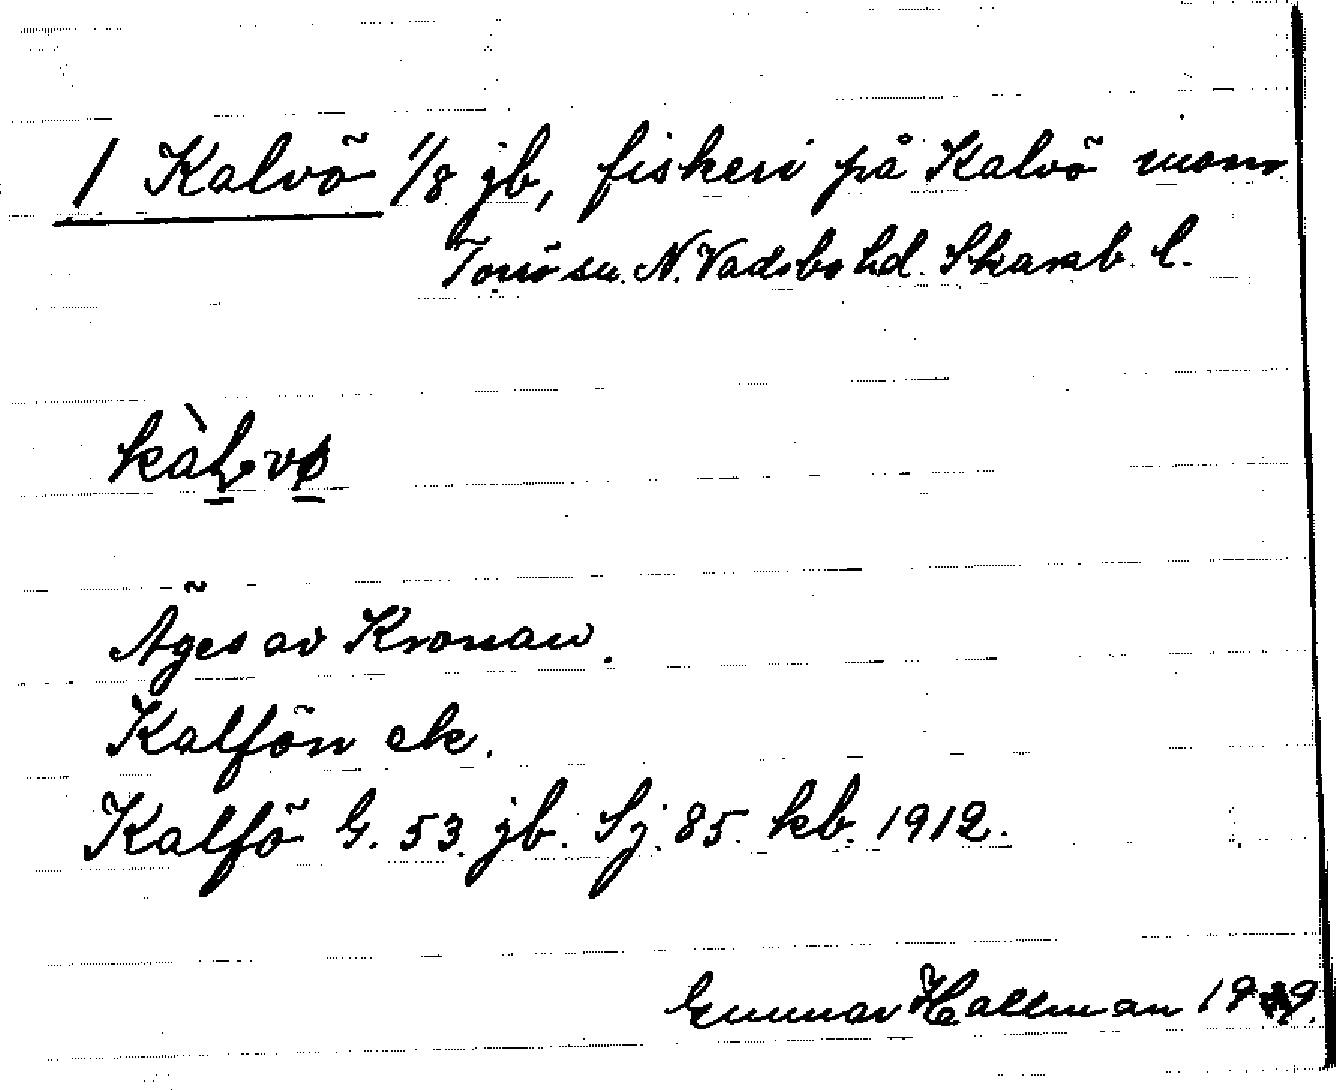 1 Kalvö 1/8 jb, fiskeri på Kalvö mom.
Torsö sn. N. Vadsbo hd. Skarab. l.
kàḷvø
Äges av Kronan.
Kalfön ek.
Kalfö G. 53. jb. Sj. 85. kb. 1912.
Gunnar Hallman